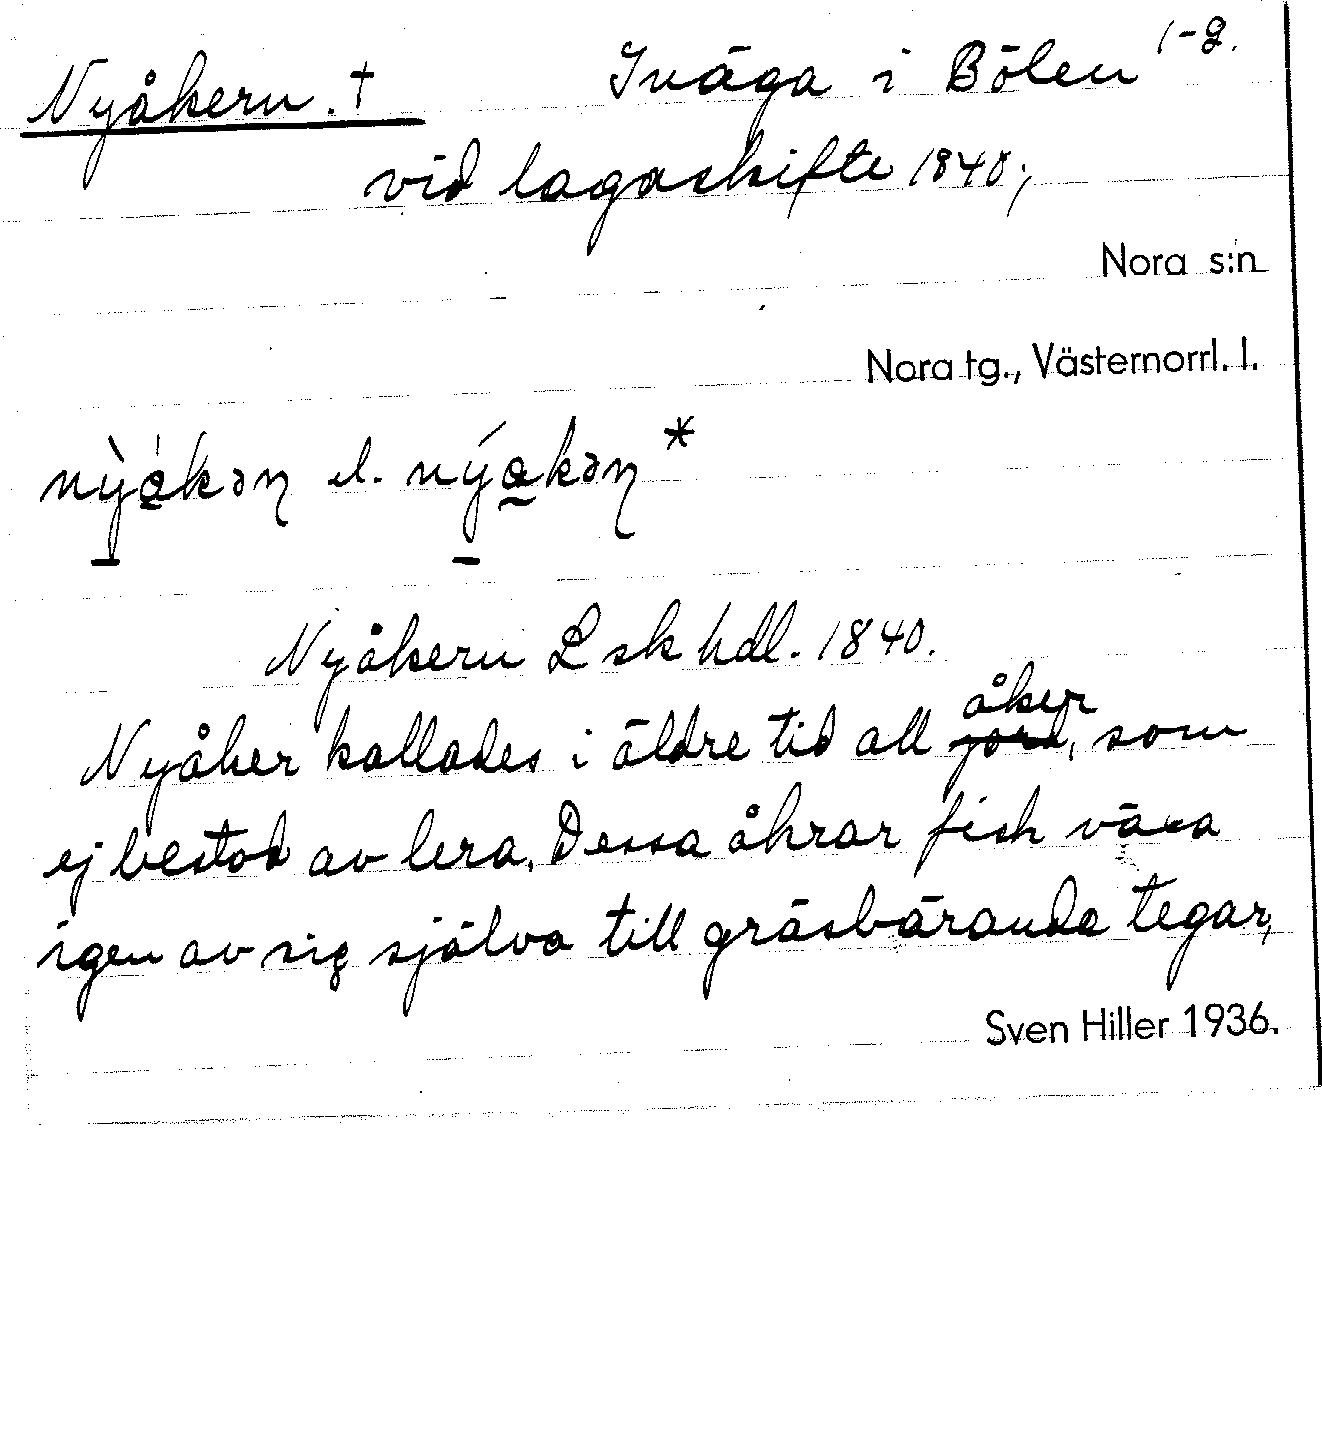 Nyåkern. † Inäga i Bölen 1-2.
vid lagaskifte 1840;
Nora s:n
Nora tg., Västernorrl. l.
nỳåkəɳ el. nýåkəɳ *
Nyåkern Lsk hdl. 1840.
Nyåker kallades i äldre tid all åker, som
ej bestod av lera. Dessa åkrar fick växa
igen av sig själva till gräsbärande tegar,
Sven Hiller 1936.